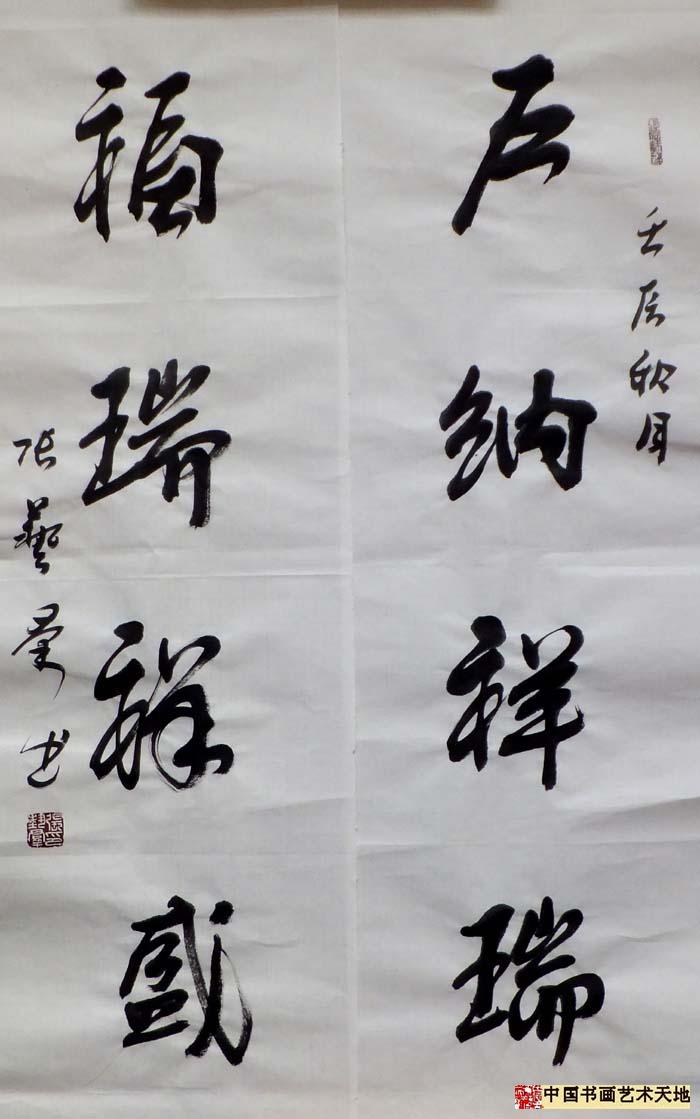 壬辰秋月
户纳祥瑞
福瑞祥盛
张藝书
中国书画艺术天地